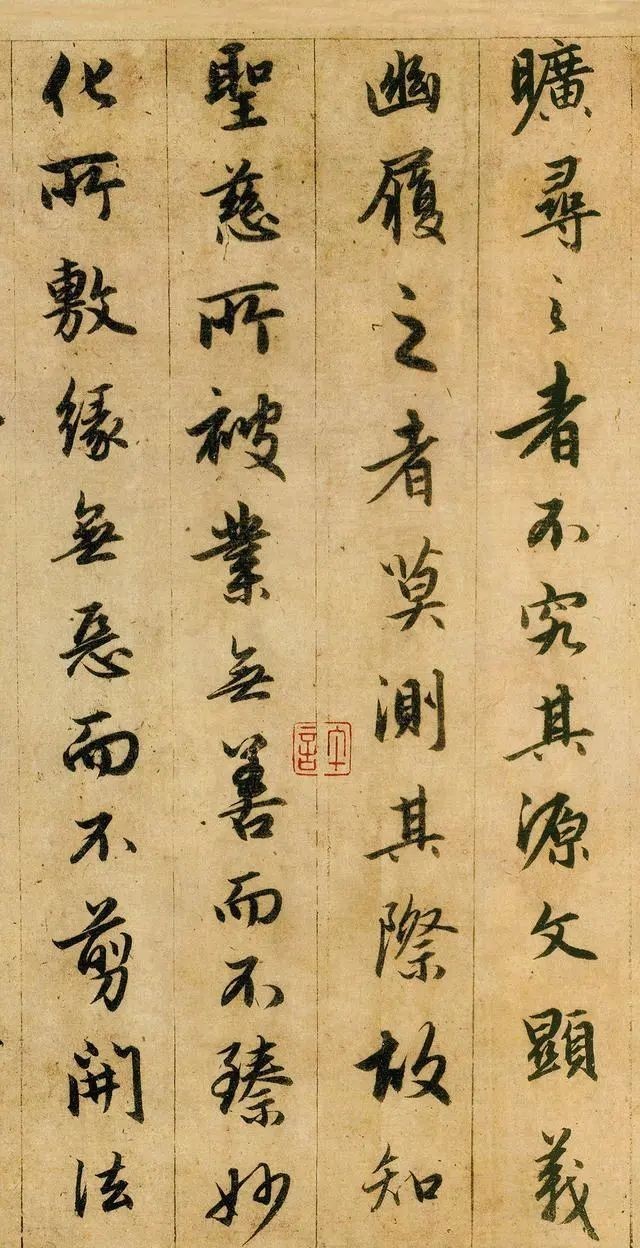 曠尋之者不究其源文顯義
幽履之者莫測其際故知
聖慈所被業無善而不臻妙
化所敷緣無惡而不剪開法